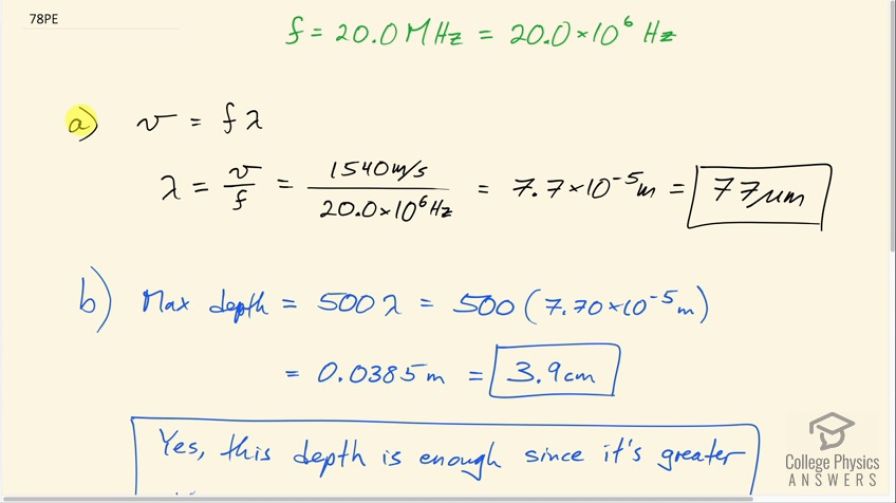 78PE
f = 20.0 MHz = 20.0×10⁶ Hz
a) v = fλ
λ = v/f = 1540 m/s / 20.0×10⁶ Hz = 7.7×10⁻⁵ m = 77 μm
b) Max depth = 500 λ = 500 (7.70×10⁻⁵ m)
= 0.0385 m = 3.9 cm
Yes, this depth is enough since it's greater
College Physics
ANSWERS